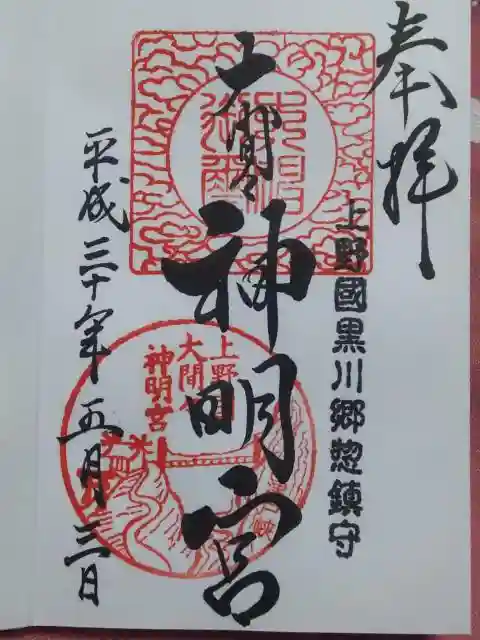 奉拝
上野國黒川郷惣鎮守
大間々
神明宮
上野國
大間々
神明宮
平成三十年五月三日